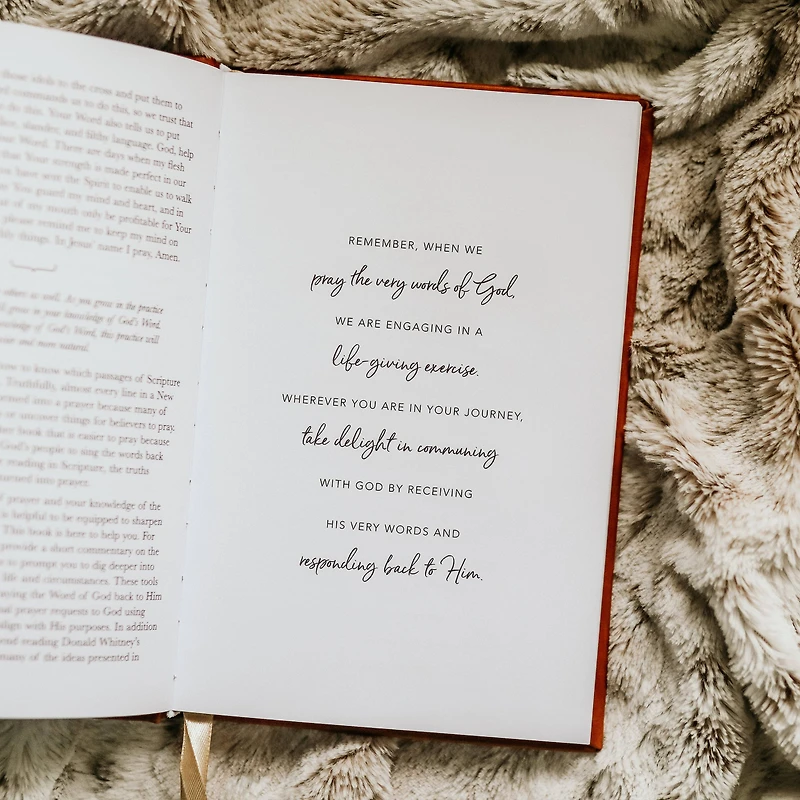 those idols to the cross and put them to
commands us to do this, so we trust that
do this. Your Word also tells us to put
slander, and filthy language. God, help
Word. There are days when my flesh
that Your strength is made perfect in our
have sent the Spirit to enable us to walk
You guard my mind and heart, and in
of my mouth only be profitable for Your
please remind me to keep my mind on
things. In Jesus' name I pray, Amen.
others as well. As you grow in the practice
grow in your knowledge of God's Word.
knowledge of God's Word, this practice will
and more natural.
to know which passages of Scripture
Truthfully, almost every line in a New
turned into a prayer because many of
or uncover things for believers to pray.
book that is easier to pray because
God's people to sing the words back
reading in Scripture, the truths
turned into prayer.
prayer and your knowledge of the
is helpful to be equipped to sharpen
This book is here to help you. For
provide a short commentary on the
to prompt you to dig deeper into
life and circumstances. These tools
the Word of God back to Him
prayer requests to God using
align with His purposes. In addition
reading Donald Whitney's
many of the ideas presented in
REMEMBER, WHEN WE
pray the very words of God,
WE ARE ENGAGING IN A
life-giving exercise.
WHEREVER YOU ARE IN YOUR JOURNEY,
take delight in communing
WITH GOD BY RECEIVING
HIS VERY WORDS AND
responding back to Him.